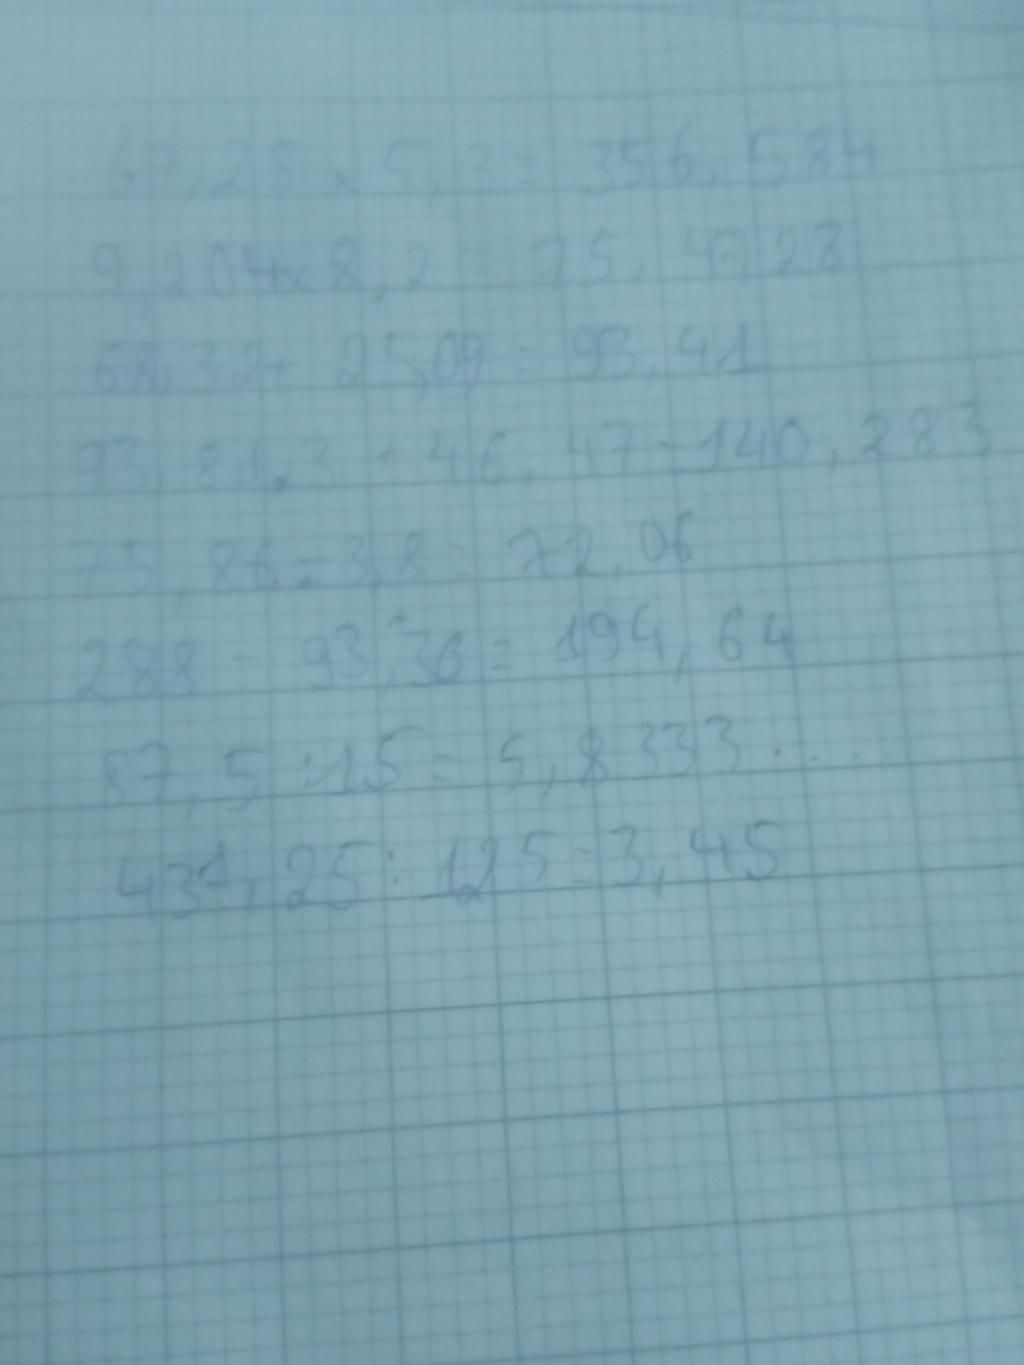 67,28 x 5,3 = 356,584
9,204 x 8,2 = 75,4728
68,32 + 25,09 = 93,41
93,813 + 46,47 = 140,283
75,86 - 3,8 = 72,06
288 - 93,36 = 194,64
87,5 : 15 = 5,8333.....
431,25 : 125 = 3,45